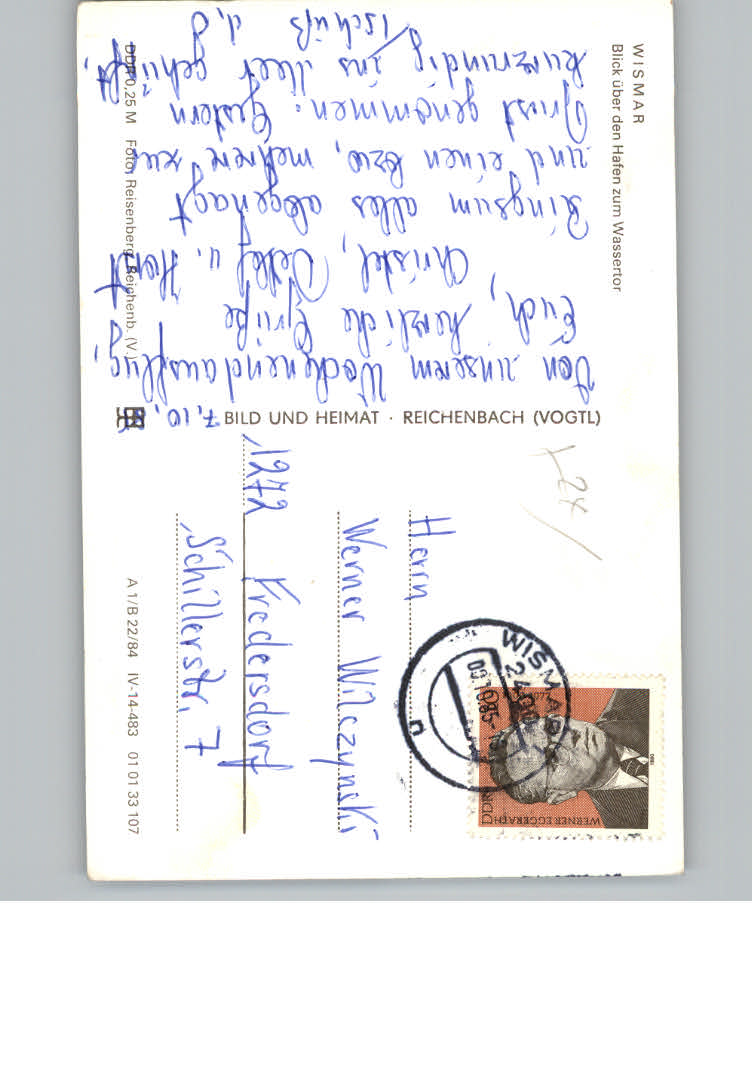 WISMAR
Blick über den Hafen zum Wassertor
7.10.
Von unserem Wochenendausflug,
Euch, herzliche Grüße
Christel, Detlef u. Horst
Ringsum alles abgenagt
und einen bzw. mehrere zur
Brust genommen. Gestern
kurzmindig ins Meer gehüpft.
Tschüß d. J.
DDR 0,25 M Foto: Reisenberg, Reichenb. (V.)
BILD UND HEIMAT · REICHENBACH (VOGTL)
Herrn
Werner Wilczynski
1272 Fredersdorf
Schillerstr. 7
A 1/B 22/84 IV-14-483 01 01 33 107
WISMAR
2400
WERNER EGGERATH
DDR
1980